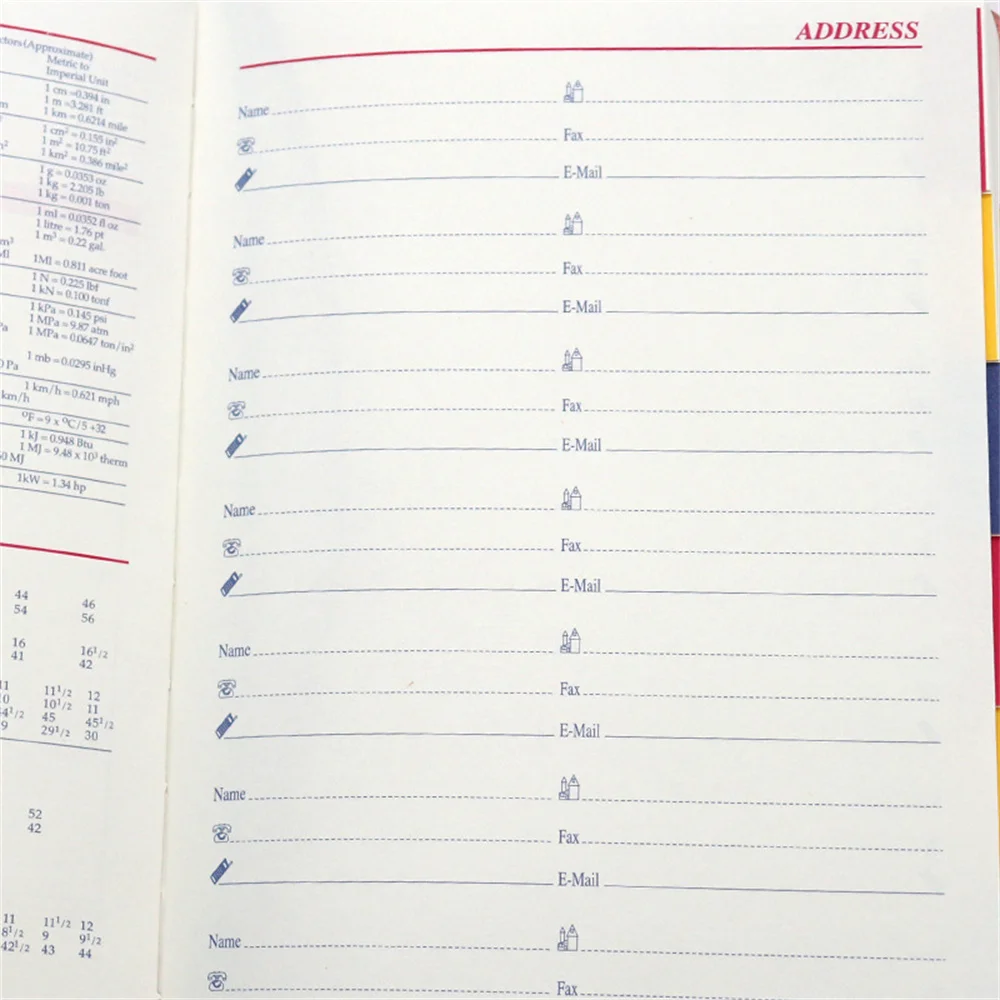 ctors (Approximate)
Metric to
Imperial Unit
1 cm =0.394 in
1 m =3.281 ft
1 km = 0.6214 mile
1 cm² = 0.155 in²
1 m² = 10.75 ft²
1 km² = 0.386 mile²
1 g = 0.0353 oz
1 kg = 2.205 lb
1 kg = 0.001 ton
1 ml = 0.0352 fl oz
1 litre = 1.76 pt
1 m³ = 0.22 gal.
1Ml = 0.811 acre foot
1 N = 0.225 lbf
1 kN = 0.100 tonf
1 kPa = 0.145 psi
1 MPa = 9.87 atm
1 MPa = 0.0647 ton/in²
1 mb = 0.0295 inHg
1 km/h = 0.621 mph
km/h
ºF = 9 x ºC/5 +32
1 kJ = 0.948 Btu
1 MJ = 9.48 x 10³ therm
1kW = 1.34 hp
44 46
54 56
16 16¹/2
41 42
11 11¹/2 12
10 10¹/2 11
44¹/2 45 45¹/2
9 29¹/2 30
52
42
11 11¹/2 12
8¹/2 9 9¹/2
42¹/2 43 44
ADDRESS
Name
Fax
E-Mail
Name
Fax
E-Mail
Name
Fax
E-Mail
Name
Fax
E-Mail
Name
Fax
E-Mail
Name
Fax
E-Mail
Name
Fax